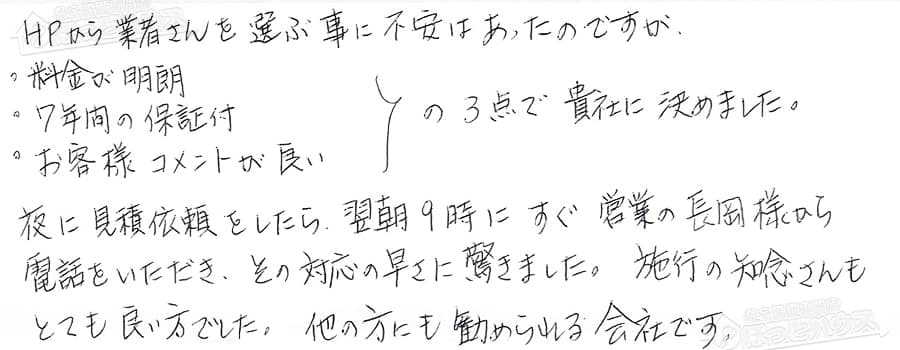 HPから業者さんを選ぶ事に不安はあったのですが、
・料金が明朗
・7年間の保証付
・お客様コメントが良い
の3点で貴社に決めました。
夜に見積依頼をしたら、翌朝9時にすぐ営業の長岡様から
電話をいただき、その対応の早さに驚きました。施行の知念さんも
とても良い方でした。他の方にも勧められる会社です。